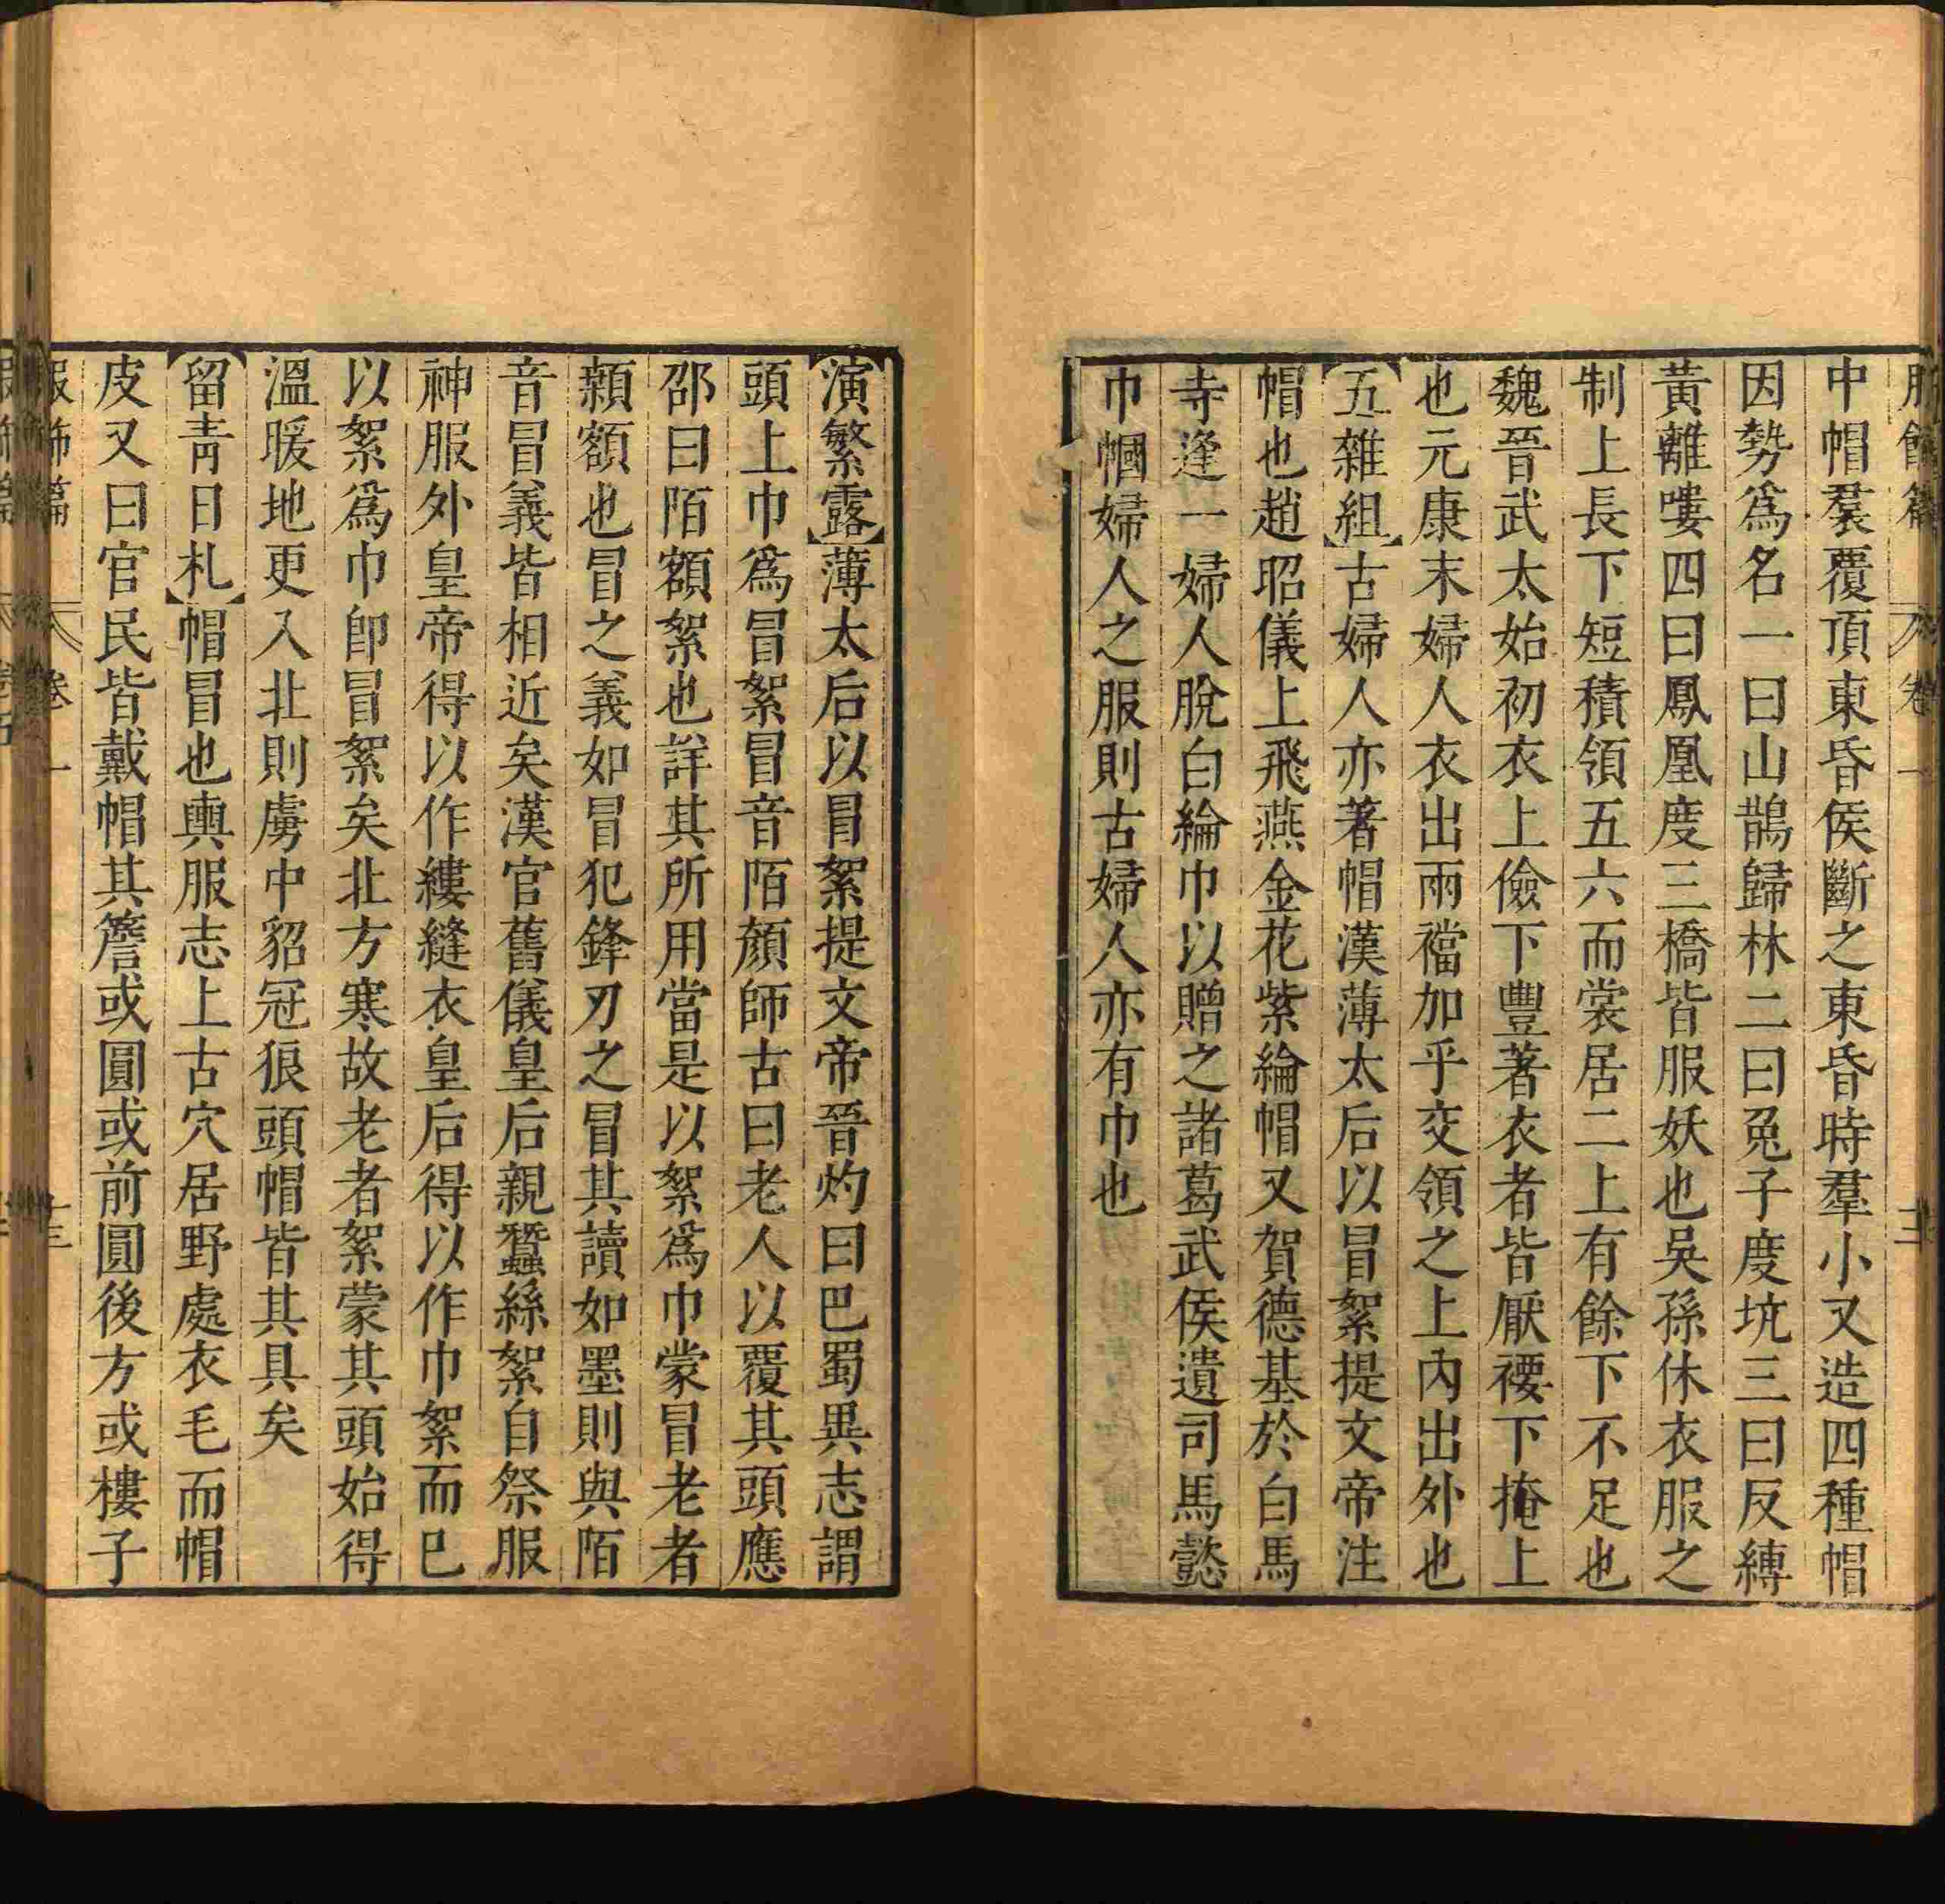 中帽羣覆頂東昏侯斷之東昏時羣小又造四種帽
因勢爲名一曰山鵲歸林二曰兔子度坑三曰反縛
黃離嘍四曰鳳凰度三橋皆服妖也吳孫休衣服之
制上長下短積領五六而裳居二上有餘下不足也
魏晉武太始初衣上儉下豐著衣者皆厭䙅下掩上
也元康末婦人衣出兩襠加乎交領之上內出外也
五雜組古婦人亦著帽漢薄太后以冒絮提文帝注
帽也趙昭儀上飛燕金花紫綸帽又賀德基於白馬
寺逢一婦人脫白綸巾以贈之諸葛武侯遺司馬懿
巾幗婦人之服則古婦人亦有巾也
演繁露薄太后以冒絮提文帝晉灼曰巴蜀異志謂
頭上巾爲冒絮冒音陌顏師古曰老人以覆其頭應
邵曰陌額絮也詳其所用當是以絮爲巾蒙冒老者
顙額也冒之義如冒犯鋒刃之冒其讀如墨則與陌
音冒義皆相近矣漢官舊儀皇后親蠶絲絮自祭服
神服外皇帝得以作縷縫衣皇后得以作巾絮而巳
以絮爲巾卽冒絮矣北方寒故老者絮蒙其頭始得
溫暖地更入北則虜中貂冠狼頭帽皆其具矣
留青日札帽冒也輿服志上古穴居野處衣毛而帽
皮又曰官民皆戴帽其簷或圓或前圓後方或樓子
服飾篇 卷一 十三